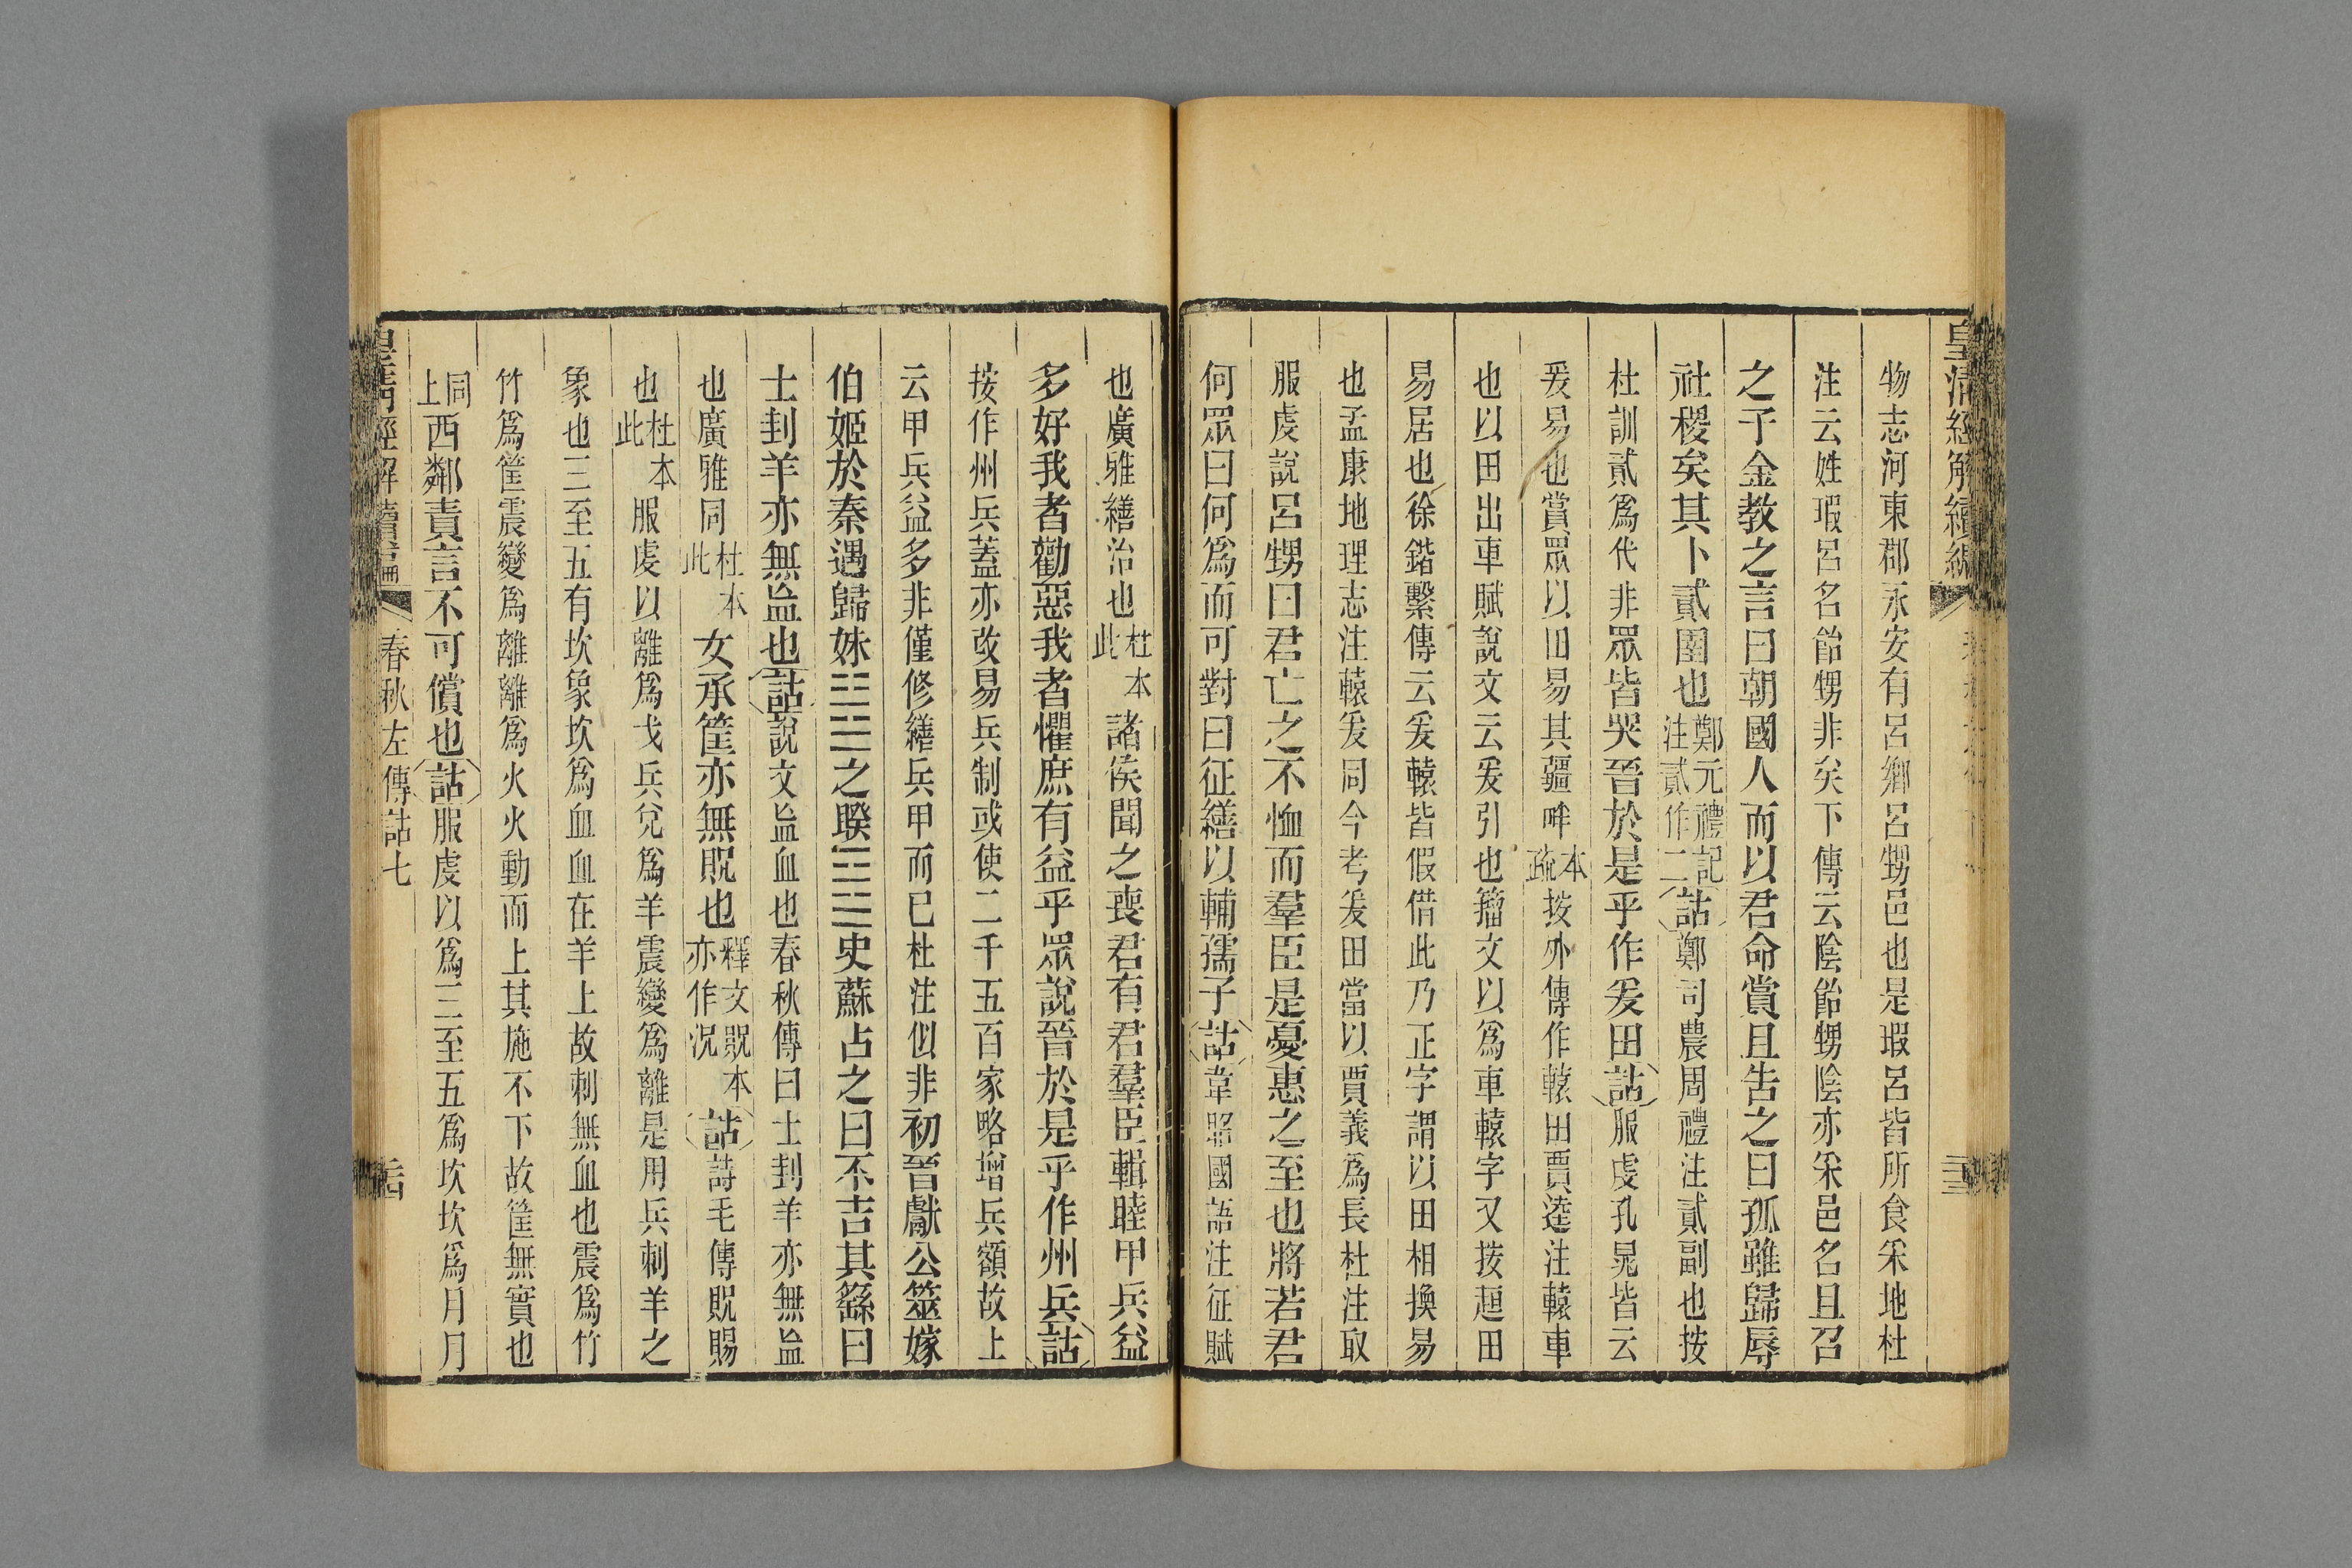 皇清經解續編
物志河東郡永安有呂鄉呂甥邑也是瑕呂皆所食采地杜
注云姓瑕呂名飴甥非矣下傳云陰飴甥陰亦采邑名且召
之子金教之言曰朝國人而以君命賞且告之曰孤雖歸辱
社稷矣其卜貳圉也鄭元禮記注貳作二詁鄭司農周禮注貳副也按
杜訓貳爲代非眾皆哭晉於是乎作爰田詁服虔孔晁皆云
爰易也賞眾以田易其疆畔本疏按外傳作轅田賈逵注轅車
也以田出車賦說文云爰引也籀文以爲車轅字又按趄田
易居也徐鍇繫傳云爰轅皆假借此乃正字謂以田相換易
也孟康地理志注轅爰同今考爰田當以賈義爲長杜注取
服虔說呂甥曰君亡之不恤而羣臣是憂惠之至也將若君
何眾曰何爲而可對曰征繕以輔孺子詁韋昭國語注征賦
也廣雅繕治也杜本此諸侯聞之喪君有君羣臣輯睦甲兵益
多好我者勸惡我者懼庶有益乎眾說晉於是乎作州兵詁
按作州兵蓋亦改易兵制或使二千五百家略增兵額故上
云甲兵益多非僅修繕兵甲而已杜注似非初晉獻公筮嫁
伯姬於秦遇歸妹䷵之睽䷥史蘇占之曰不吉其繇曰
士刲羊亦無衁也詁說文衁血也春秋傳曰士刲羊亦無衁
也廣雅同杜本此女承筐亦無貺也釋文貺本亦作況詁詩毛傳貺賜
也杜本此服虔以離爲戈兵兌爲羊震變爲離是用兵刺羊之
象也三至五有坎象坎爲血血在羊上故刺無血也震爲竹
竹爲筐震變爲離離爲火火動而上其施不下故筐無實也
同上西鄰責言不可償也詁服虔以爲三至五爲坎坎爲月月
皇清經解續編 春秋左傳詁七